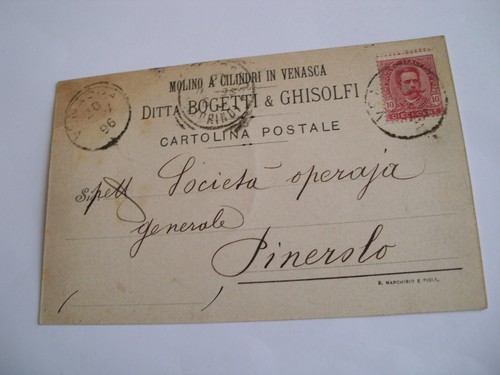 MOLINO A CILINDRI IN VENASCA
DITTA BOGETTI & GHISOLFI
CARTOLINA POSTALE
VENASCA
96
TORINO
10 10
Spett Società operaja
generale
Pinerolo
E. MARCHISIO E FIGLI.